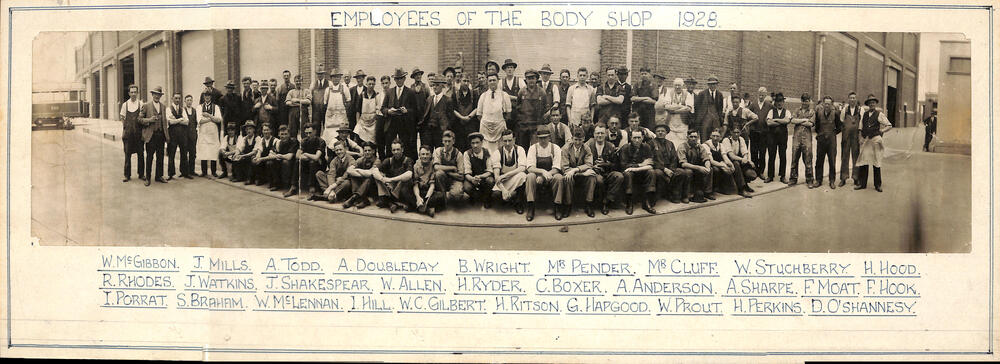 EMPLOYEES OF THE BODY SHOP 1928.
W. McGIBBON. J. MILLS. A. TODD. A. DOUBLEDAY B. WRIGHT. MR PENDER. MR CLUFF. W. STUCHBERRY. H. HOOD.
R. RHODES. J. WATKINS. J. SHAKESPEAR. W. ALLEN. H. RYDER. C. BOXER. A. ANDERSON. A. SHARPE. F. MOAT. F. HOOK.
I. PORRAT. S. BRAHAM. W. McLENNAN. I. HILL. W.C. GILBERT. H. RITSON. G. HAPGOOD. W. PROUT. H. PERKINS. D. O'SHANNESY.